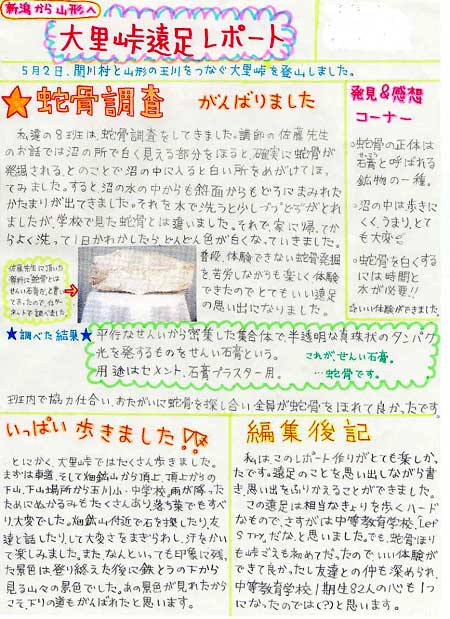 新潟から山形へ
大里峠遠足レポート
5月2日、関川村と山形の玉川をつなぐ大里峠を登山しました。
★蛇骨調査 がんばりました
私達の8班は、蛇骨調査をしてきました。講師の佐藤先生
のお話では沼の所で白く見える部分をほると、確実に蛇骨が
発掘される、とのことで沼の中に入ると白い所をめがけてほっ
てみました。すると、沼の水の中からも斜面からもどろにまみれたか
たまりが出てきました。それを水で洗うと少しづつどろがとれ
ましたが、学校で見た蛇骨とは違いました。それで、家に帰ってか
らよく洗って1日かわかしたらどんどん色が白くなっていきました。
普段、体験できない蛇骨発掘
を苦労しながらも楽しく体験
できたのでとてもいい遠足
の思い出になりました。
佐藤先生に頂いた
資料に蛇骨とは
せんい石膏だと書い
てあったので、インター
ネットで調べました。
発見&感想
コーナー
○蛇骨の正体は
せっこう
石膏と呼ばれる
鉱物の一種。
○沼の中は歩きに
くく、うまり、とて
も大変
○蛇骨を白くする
には時間と
水が必要!!
☆いい体験ができました。
★調べた結果★
平行なせんいから密集した集合体で半透明な真珠状のタンパク
光を発するものをせんい石膏という。
用途はセメント、石膏プラスター用。
これが、せんい石膏。
…蛇骨です。
班内で協力仕合い、おたがいに蛇骨を探し合い全員が蛇骨をほれて良かったです。
いっぱい歩きました!!
とにかく、大里峠ではたくさん歩きました。
まずは車道、そして畑鉱山から頂上、頂上からの
下山、下山場所から玉川小・中学校。雨が降った
ためにぬかるみもたくさんあり、落ち葉でもすべ
り大変でした。畑鉱山付近で石を探したり、友
達と話したり、して大変さをまぎらわし、汗をかい
て楽しみました。また、なんといっても印象に残っ
た景色は登り終えた後に鉄とうの下から
見る山々の景色でした。あの景色が見れたから
こそ、下りの道もがんばれたと思います。
編集後記
私はこのレポート作りがとても楽しかっ
たです。遠足のことを思い出しながら書
き、思い出をふりかえることができました。
この遠足は相当なきょりを歩くハード
なもので、さすがは中等教育学校、Let's
Try。だな。と思いました。でも、蛇骨ほり
も峠ごえも初めてだったので、いい体験が
できて良かったし友達との仲も深められ、
中等教育学校1期生82人の心も1つ
になったのでは(?)と思います。